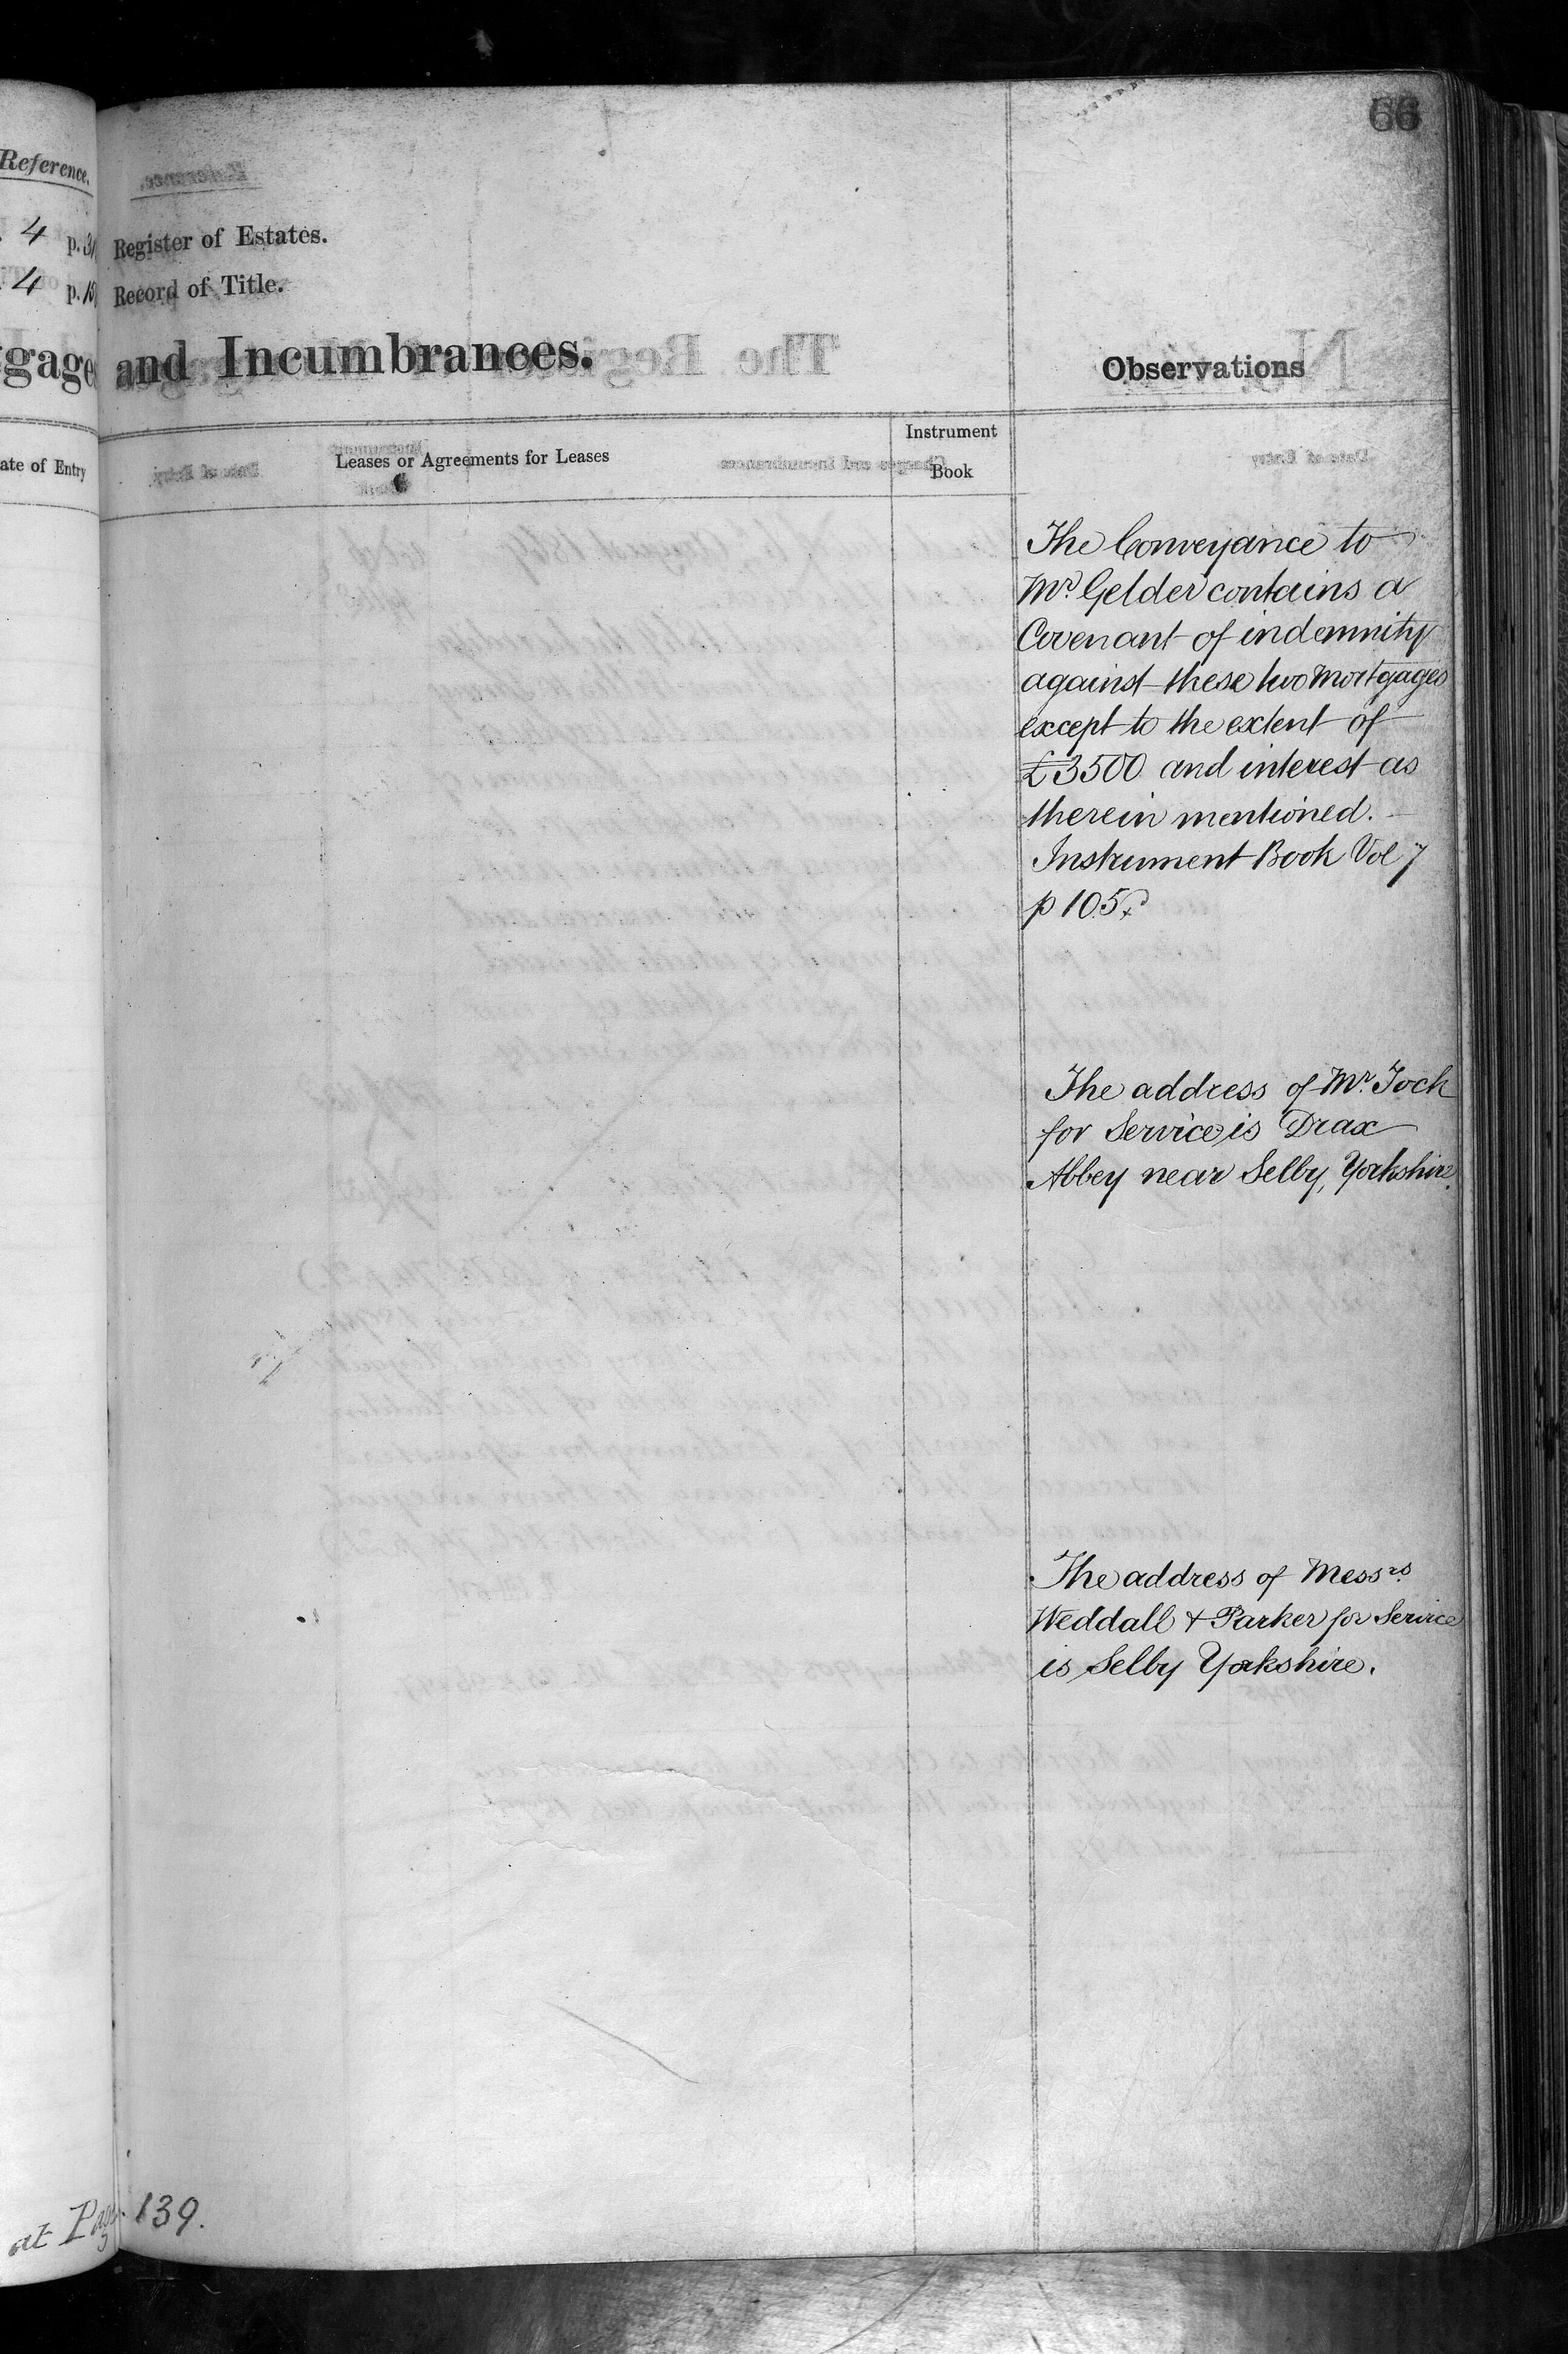 66
Reference.
4 p.
4 p.
Register of Estates.
Record of Title.
gage and Incumbrances.
Observations
ate of Entry
Leases or Agreements for Leases
Instrument
Book
The Conveyance to
Mr. Gelder contains a
Covenant of indemnity
against these two Mortgages
except to the extent of
£3500 and interest as
therein mentioned.
Instrument Book Vol 7
p 105
The address of Mr. Jock
for Service is Drax
Abbey near Selby, Yorkshire.
The address of Messrs.
Weddall & Parker for Service
is Selby Yorkshire.
at Page 139.